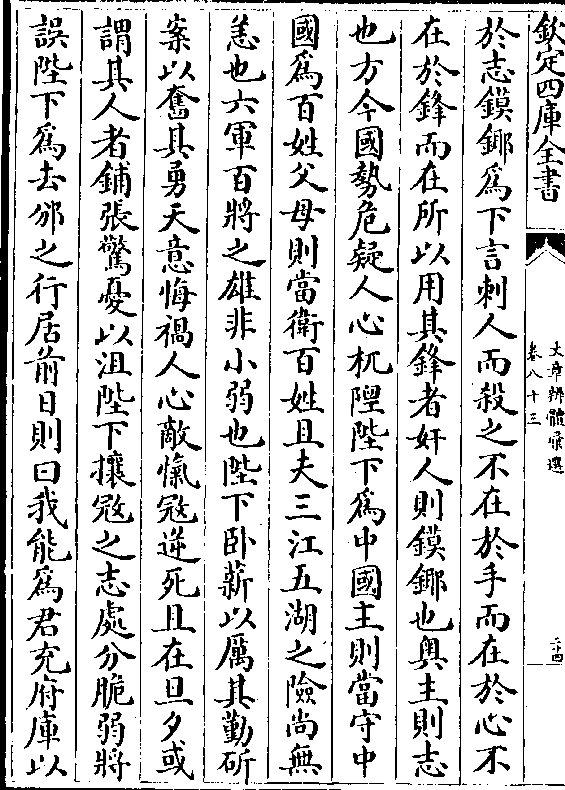 欽定四庫全書
文章辨體彙選
卷八十三
二十四
於志鏌鎁爲下言刺人而殺之不在於手而在於心不
在於鋒而在所以用其鋒者奸人則鏌鎁也輿主則志
也方今國勢危疑人心杌隉陛下爲中國主則當守中
國爲百姓父母則當衛百姓且夫三江五湖之險尚無
恙也六軍百將之雄非小弱也陛下卧薪以厲其勤斫
案以奮其勇天意悔禍人心敵愾冦逆死且在旦夕或
謂其人者鋪張驚憂以沮陛下攘冦之志處分脆弱將
誤陛下爲去邠之行居前日則曰我能爲君充府庫以